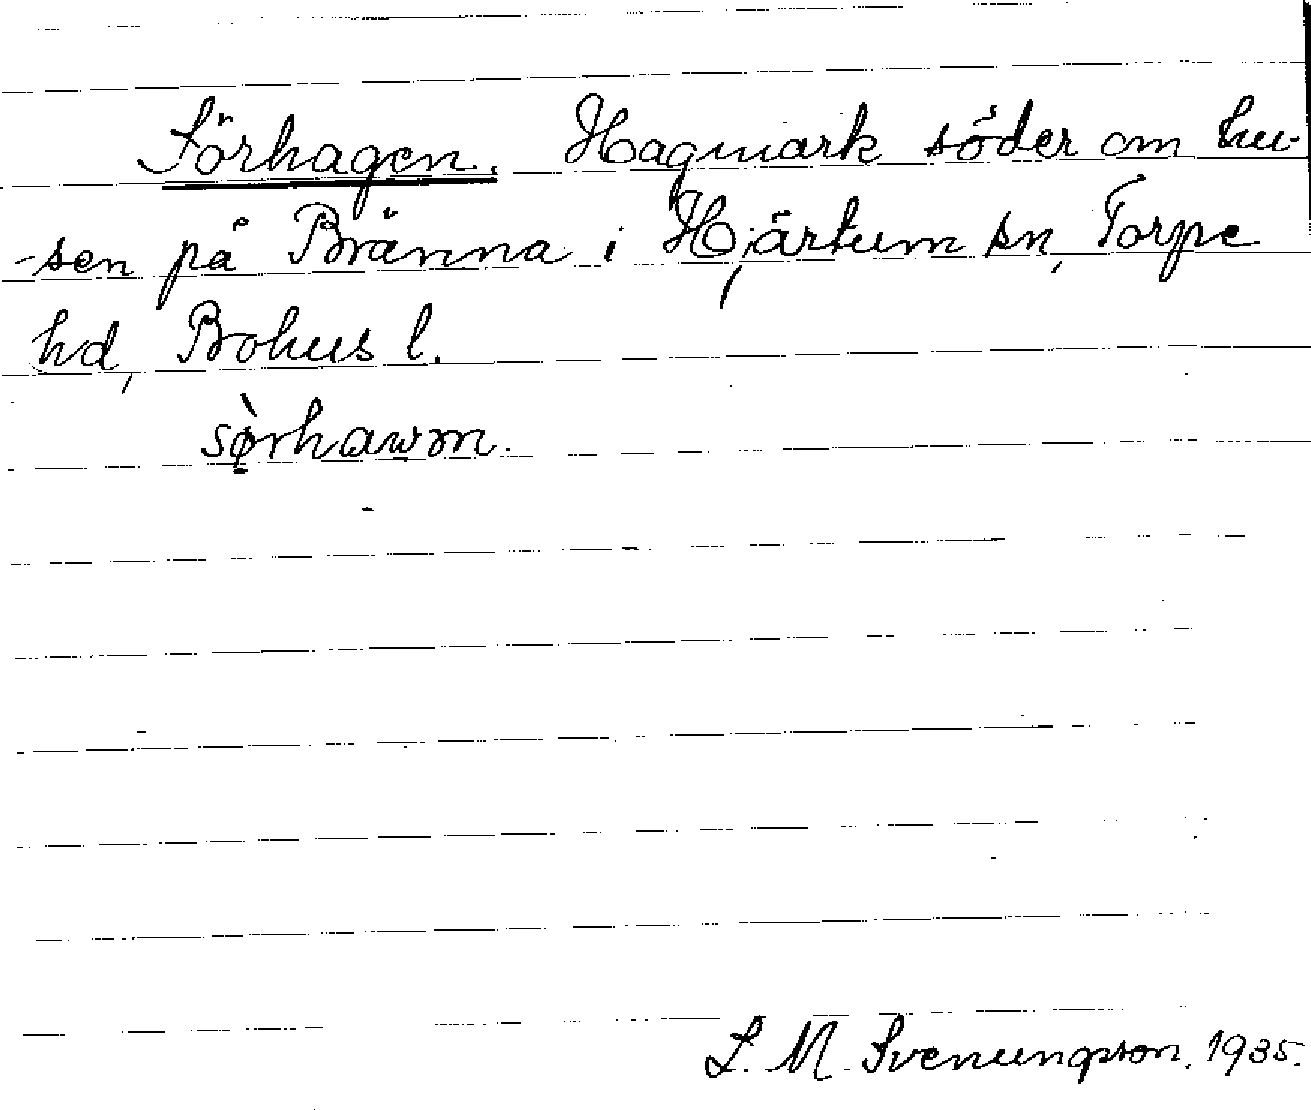 Sörhagen. Hagmark söder om hu-
-sen på Bränna i Hjärtum sn, Torpe
hd, Bohus l.
sø̀rhawm.
S. M. Svenungson. 1935.